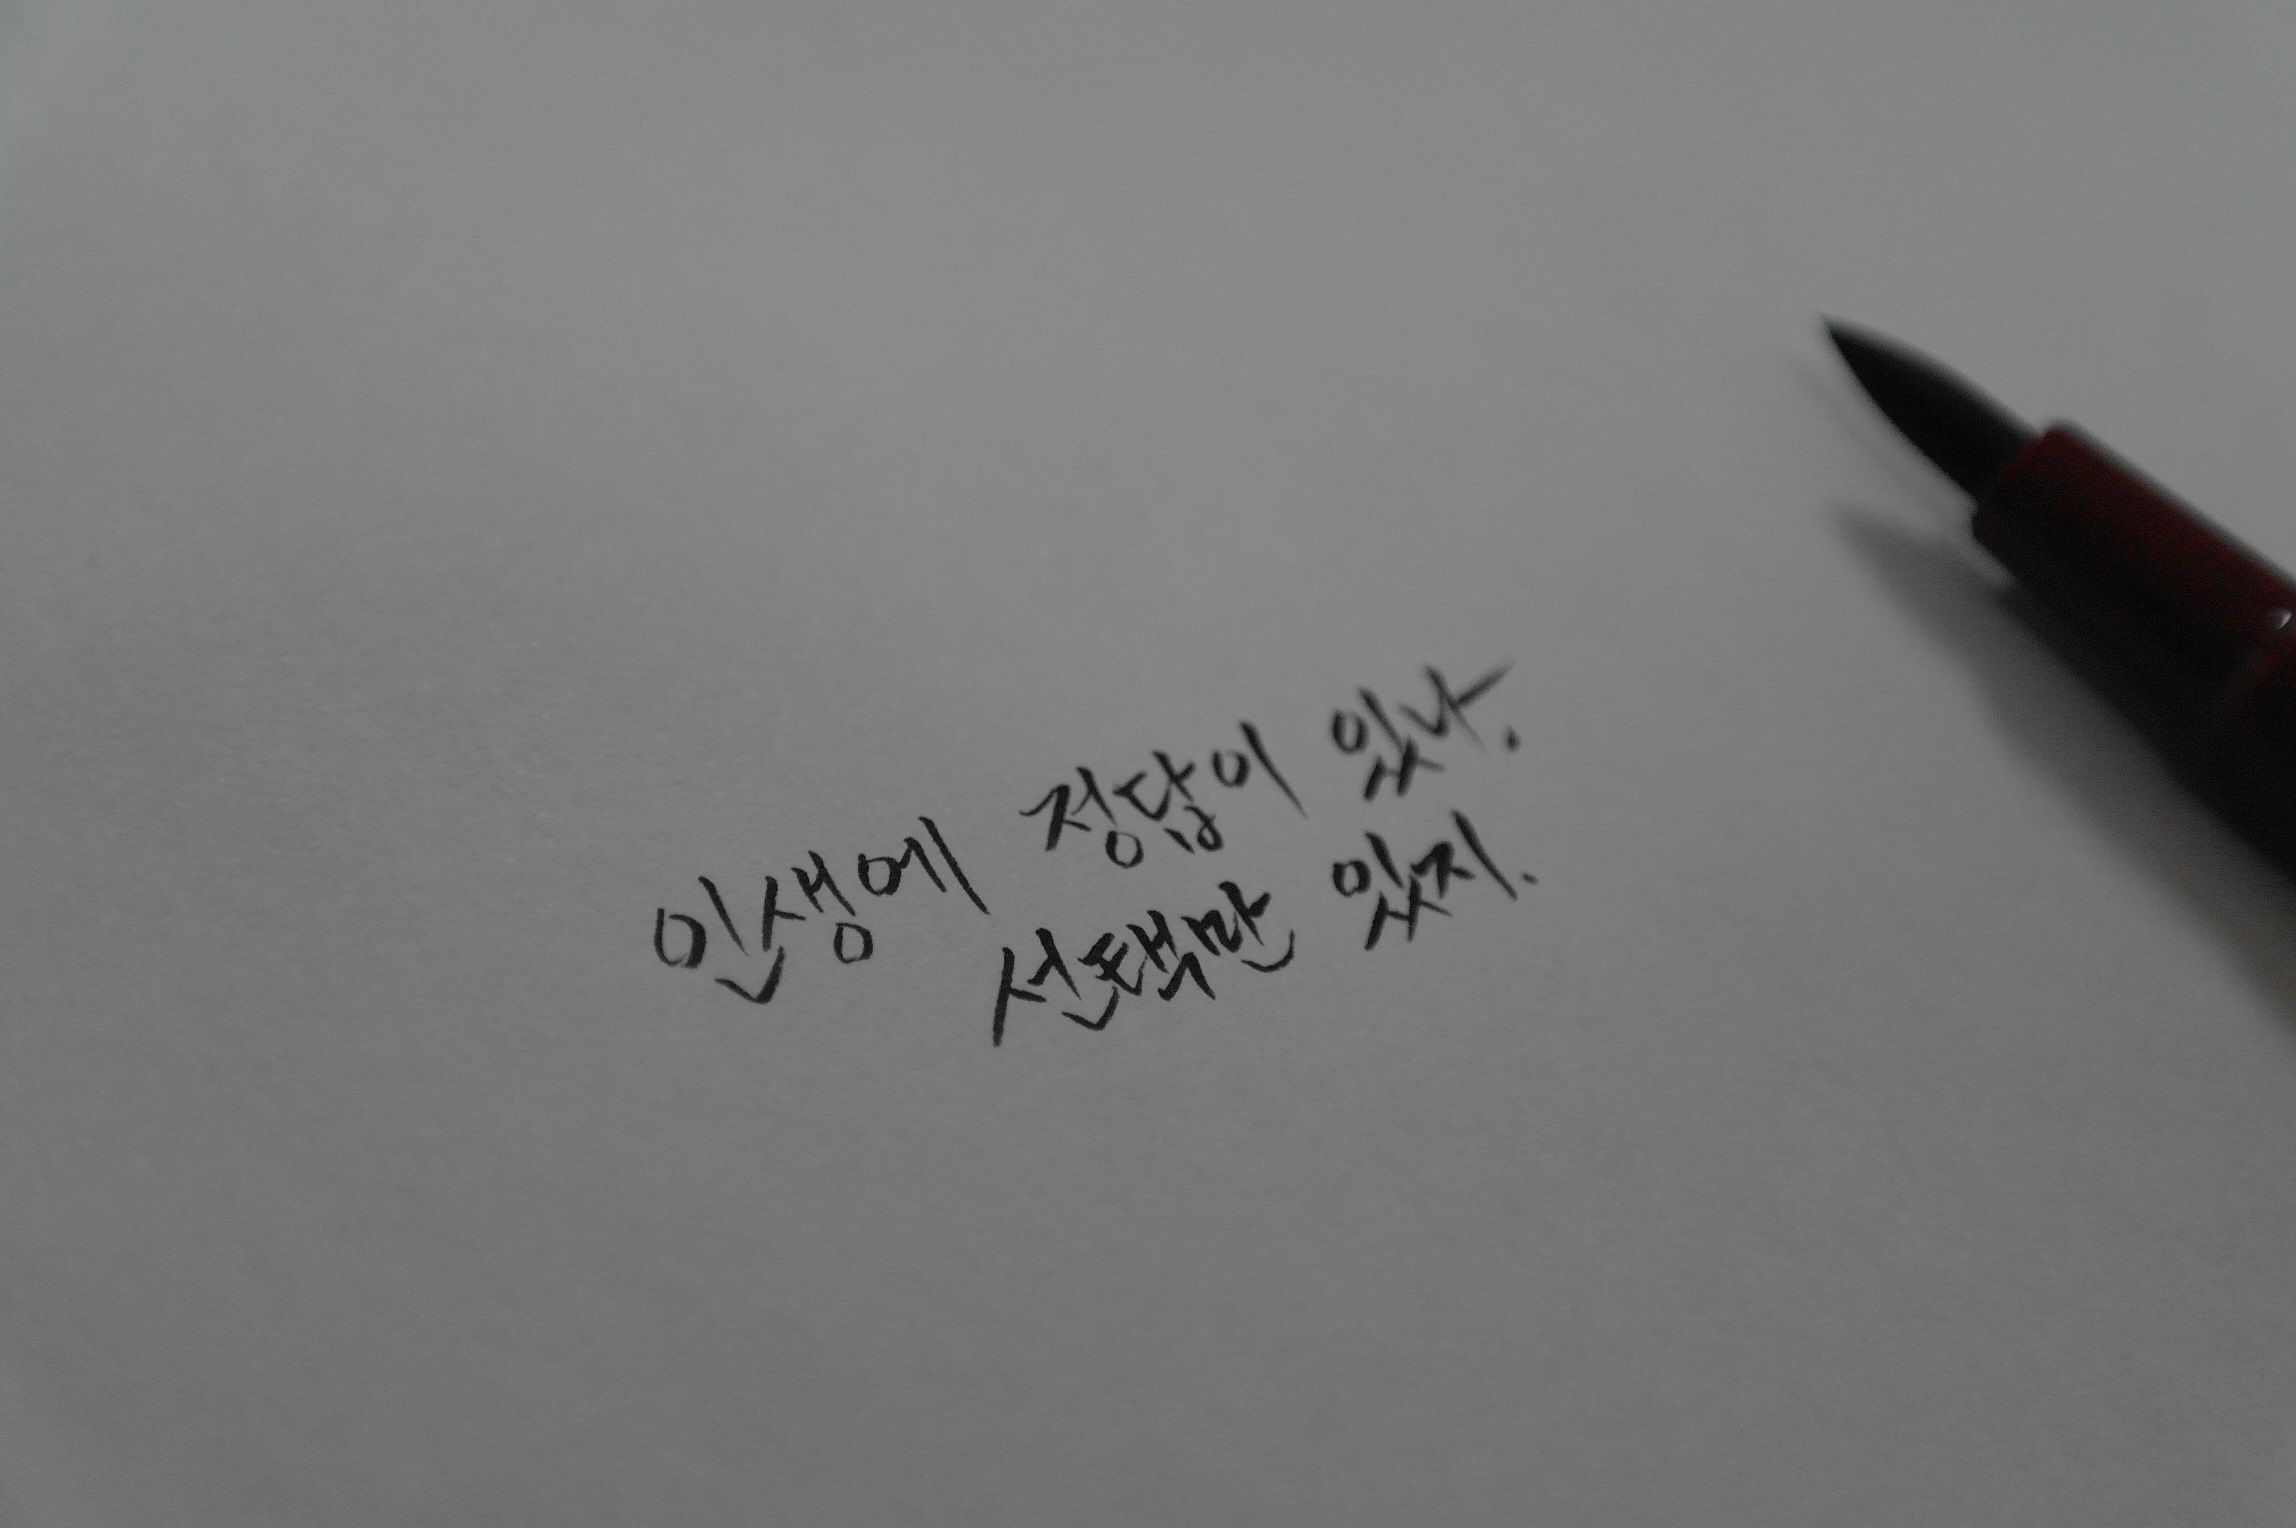 인생에 정답이 있나.
선택만 있지.